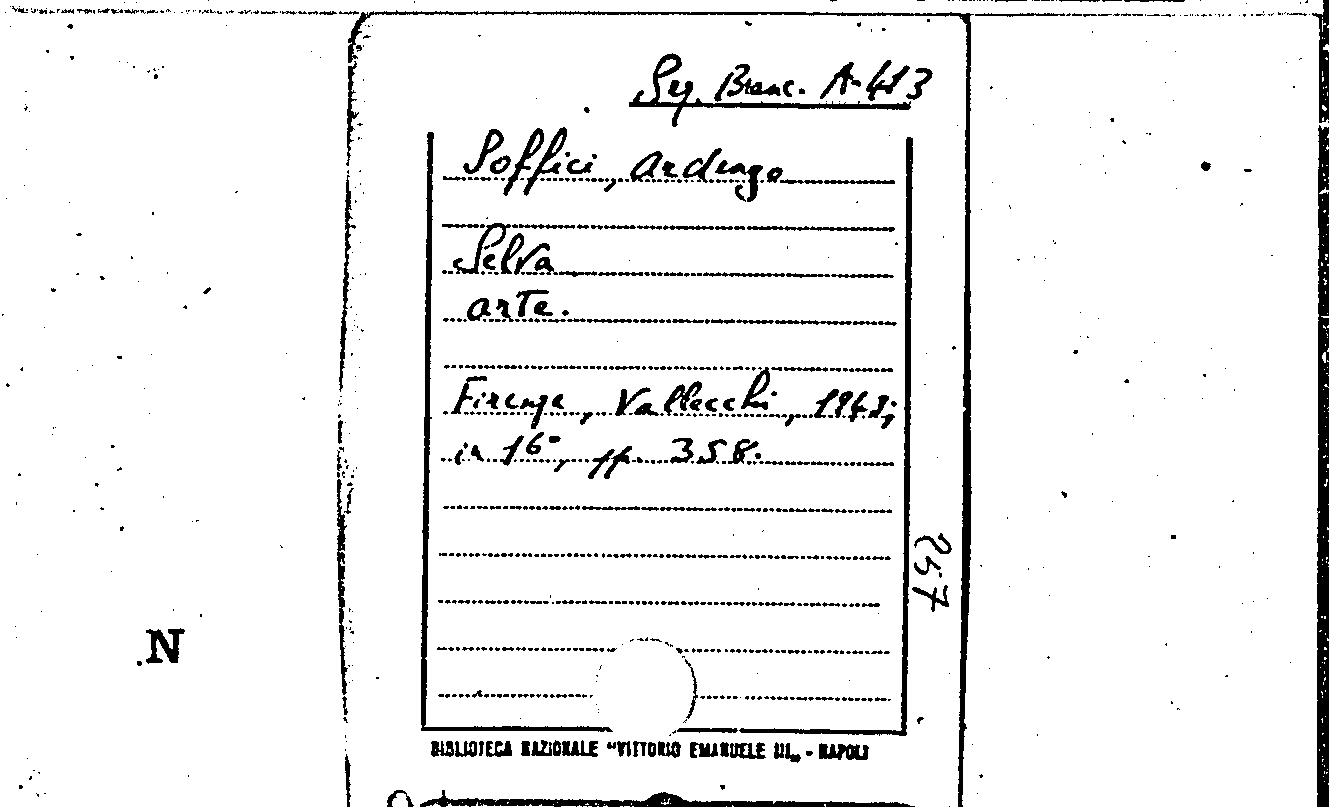 Seg. Branc. A-413
Soffici, Ardengo
Selva
arte.
Firenze, Vallecchi, 1943;
in 16°, pp. 358.
257
N
BIBLIOTECA NAZIONALE "VITTORIO EMANUELE III„ - NAPOLI